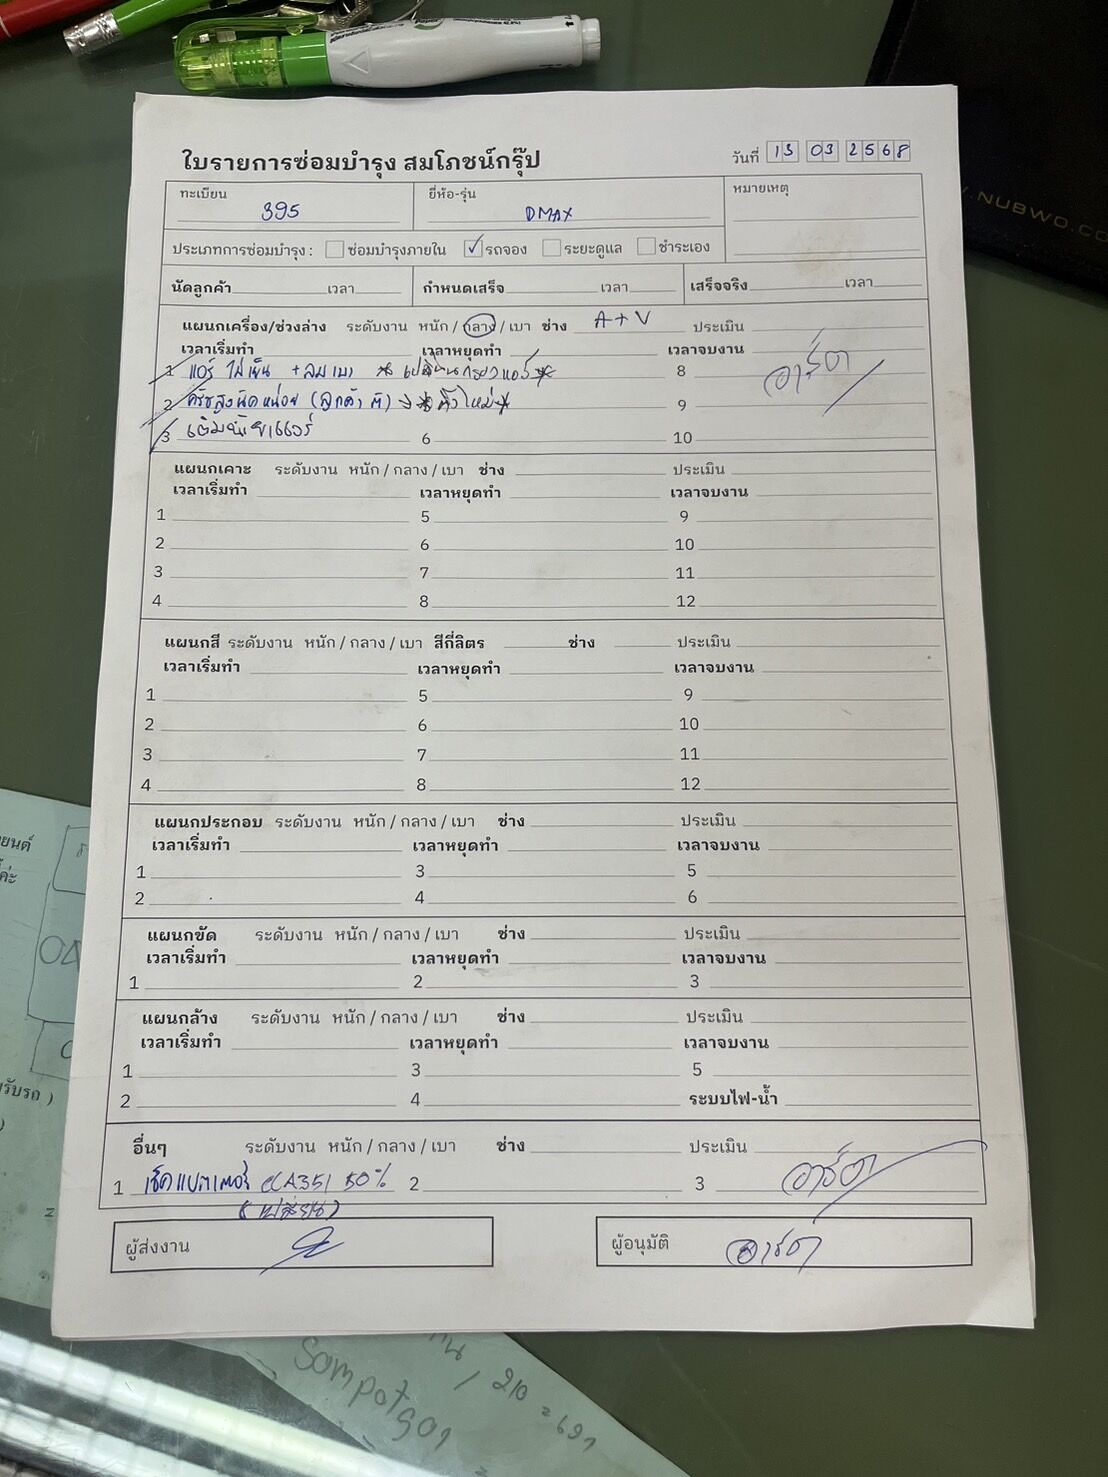 ใบรายการซ่อมบำรุง สมโภชน์กรุ๊ป
วันที่ 13 03 2568
ทะเบียน 395 ยี่ห้อ-รุ่น DMAX หมายเหตุ
ประเภทการซ่อมบำรุง : ซ่อมบำรุงภายใน ✓ รถจอง ระยะดูแล ชำระเอง
นัดลูกค้า เวลา กำหนดเสร็จ เวลา เสร็จจริง เวลา
แผนกเครื่อง/ช่วงล่าง ระดับงาน หนัก / กลาง / เบา ช่าง A+V ประเมิน
เวลาเริ่มทำ เวลาหยุดทำ เวลาจบงาน
1 แอร์ ไม่เย็น + ลมเบา 8
2 ครัชสูงนิดหน่อย (ลูกค้า 9
3 เติมน้ำยาแอร์ 6 10
อาร์ต
แผนกเคาะ ระดับงาน หนัก / กลาง / เบา ช่าง ประเมิน
เวลาเริ่มทำ เวลาหยุดทำ เวลาจบงาน
1 5 9
2 6 10
3 7 11
4 8 12
แผนกสี ระดับงาน หนัก / กลาง / เบา สีกี่ลิตร ช่าง ประเมิน
เวลาเริ่มทำ เวลาหยุดทำ เวลาจบงาน
1 5 9
2 6 10
3 7 11
4 8 12
แผนกประกอบ ระดับงาน หนัก / กลาง / เบา ช่าง ประเมิน
เวลาเริ่มทำ เวลาหยุดทำ เวลาจบงาน
1 3 5
2 4 6
แผนกขัด ระดับงาน หนัก / กลาง / เบา ช่าง ประเมิน
เวลาเริ่มทำ เวลาหยุดทำ เวลาจบงาน
1 2 3
แผนกล้าง ระดับงาน หนัก / กลาง / เบา ช่าง ประเมิน
เวลาเริ่มทำ เวลาหยุดทำ เวลาจบงาน
1 3 5
2 4 ระบบไฟ-น้ำ
อื่นๆ ระดับงาน หนัก / กลาง / เบา ช่าง ประเมิน
1 เช็คแบตเตอรี่ CCA351 50% 2 3 อาร์ต
(เปลี่ยน)
ผู้ส่งงาน ผู้อนุมัติ อาร์ต
NUBWO.CO